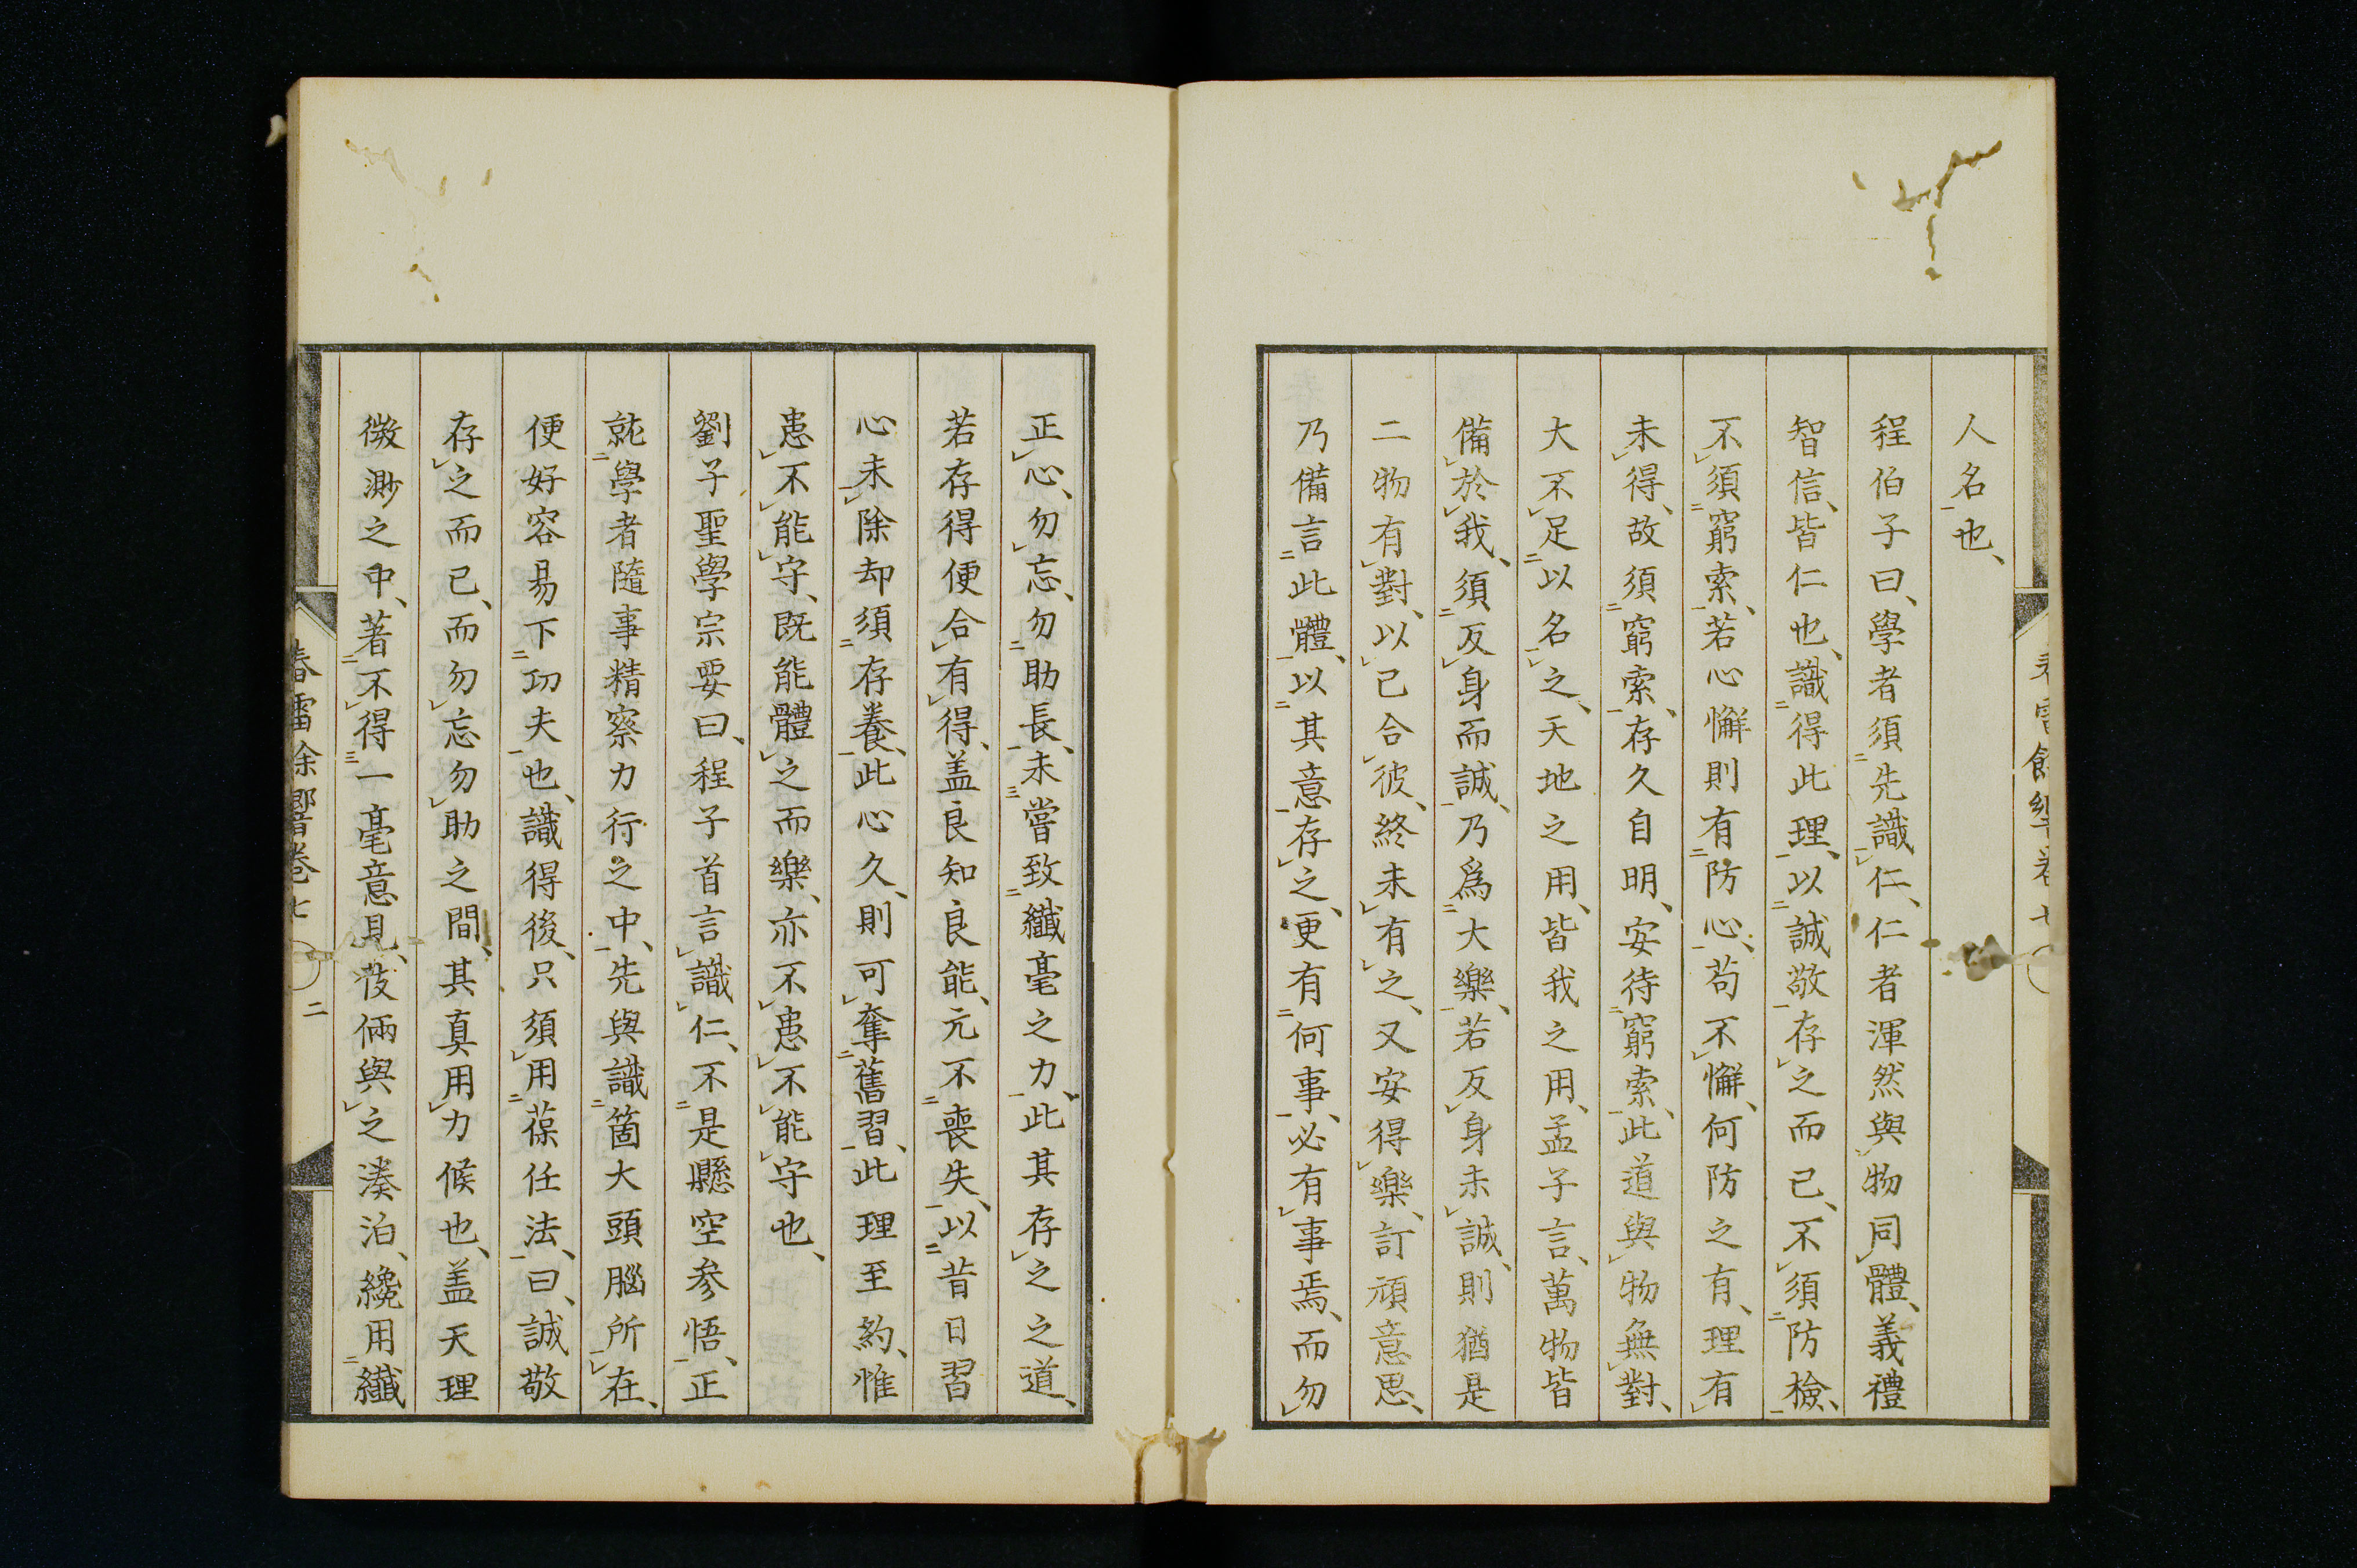 人名也、
程伯子曰、學者須先識仁、仁者渾然與物同體、義禮
智信、皆仁也、識得此理、以誠敬存之而已、不須防檢、
不須窮索、若心懈則有防心、苟不懈、何防之有、理有
未得、故須窮索、存久自明、安待窮索、此道與物無對、
大不足以名之、天地之用、皆我之用、孟子言、萬物皆
備於我、須反身而誠、乃爲大樂、若反身未誠、則猶是
二物有對、以己合彼、終未有之、又安得樂、訂頑意思、
乃備言此體、以其意存之、更有何事、必有事焉、而勿
正心、勿忘、勿助長、未嘗致纖毫之力、此其存之之道、
若存得便合有得、盖良知良能、元不喪失、以昔日習
心未除却須存養、此心久、則可奪舊習、此理至約、惟
患不能守、既能體之而樂、亦不患不能守也、
劉子聖學宗要曰、程子首言識仁、不是懸空参悟、正
就學者隨事精察力行之中、先與識箇大頭腦所在、
便好容易下功夫也、識得後、只須用葆任法、曰、誠敬
存之而已、而勿忘勿助之間、其真用力候也、盖天理
微渺之中、著不得一毫意見、伎倆與之湊泊、纔用纖
春雷餘響卷七 二